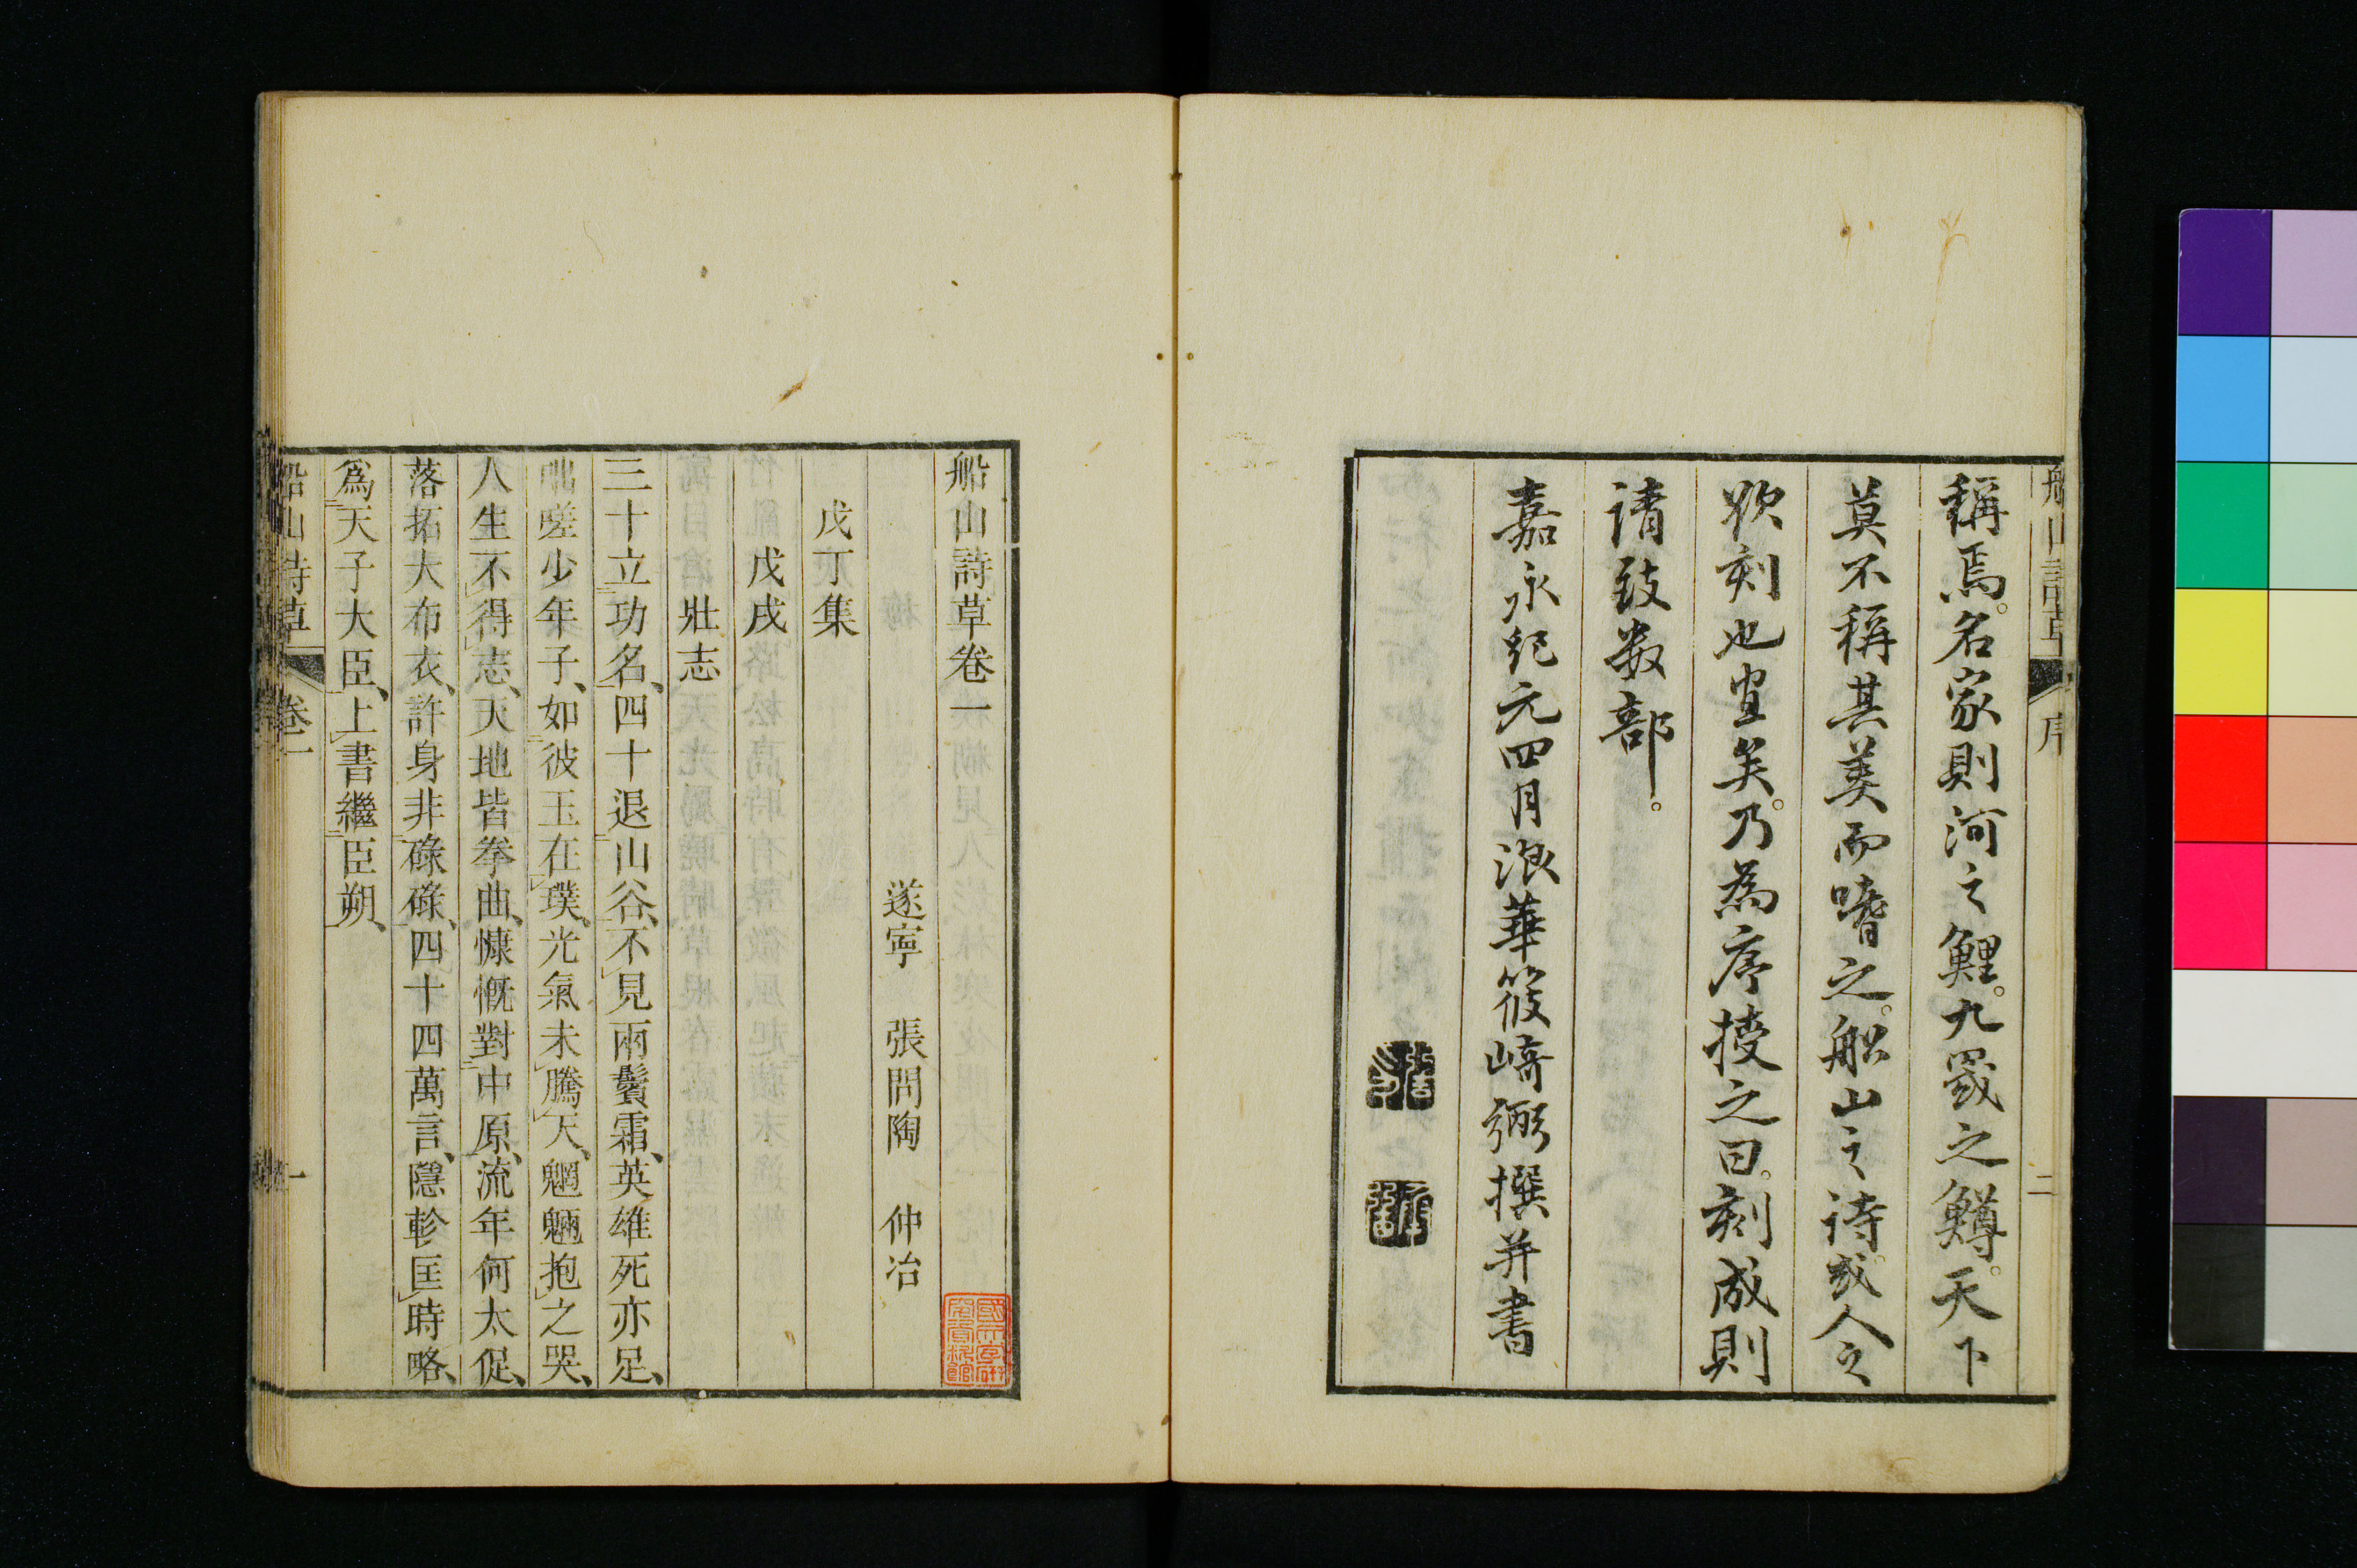 船山詩草
序
二
稱焉。名家則河之鯉。九罭之鱒。天下
莫不稱其美而嗜之。船山之詩。或人之
欲刻也宜矣。乃為序授之曰。刻成則
請致数部。
嘉永紀元四月浪華筱崎弼撰并書
船山詩草卷一
遂寧 張問陶 仲冶
戊丁集
戊戌
壯志
三十立功名、四十退山谷、不見兩鬢霜、英雄死亦足、
咄嗟少年子、如彼玉在璞、光氣未騰天、魍魎抱之哭、
人生不得志、天地皆拳曲、慷慨對中原、流年何太促、
落拓大布衣、許身非碌碌、四十四萬言、隱軫匡時略、
爲天子大臣、上書繼臣朔、
船山詩草
卷一
一